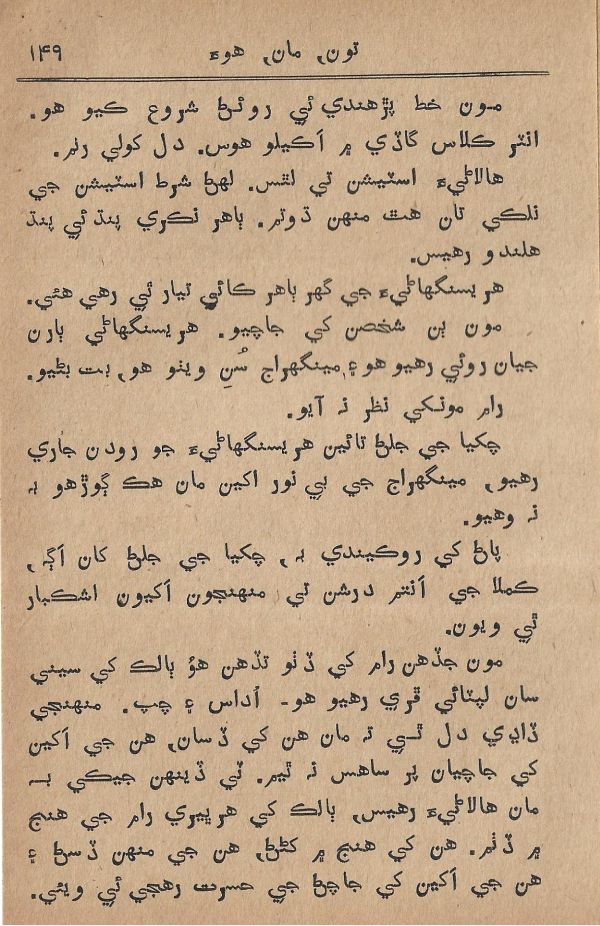 تون, مان, هوءَ ۱۴۹
مون خط پڙهندي ئي روئڻ شروع ڪيو هو.
انٽر ڪلاس گاڏي ۾ اَڪيلو هوس. دل کولي رنم.
هالاڻيءَ اسٽيشن تي لٿس. لهڻ شرط اسٽيشن جي
نلڪي تان هٿ منهن ڌوتم. ٻاهر نڪري پنڌ ئي پنڌ
هلندو رهيس.
هريسنگهاڻيءَ جي گهر ٻاهر کاٽي تيار ٿي رهي هئي.
مون ٻن شخصن کي جاچيو. هريسنگهاڻي ٻارن
جيان روئي رهيو هو ۽ مينگهراج سُنِ وينو هو, بت بڻيو.
رام مونکي نظر نہ آيو.
چکيا جي جلڻ تائين هريسنگهاڻيءَ جو رودن جاري
رهيو, مينگهراج جي بي نور اکين مان هڪ ڳوڙهو بہ
نہ وهيو.
پاڻ کي روڪيندي بہ, چکيا جي جلڻ کان اڳہ,
ڪملا جي اَنتم درشن تي منهنجون اَکيون اشڪبار
ٿي ويون.
مون جڏهن رام کي ڏٺو تڏهن هوُ ٻالڪ کي سيني
سان لپٽائي ڦري رهيو هو- اُداس ۽ چپ. منهنجي
ڏاڍي دل ٿي تہ مان هن کي ڏسان, هن جي اَکين
کي جاچيان پر ساهس نہ ٿيم. ٽي ڏينهن جيڪي بہ
مان هالاڻيءَ رهيس, ٻالڪ کي هر ڀيري رام جي هنج
۾ ڏٺم. هن کي هنج ۾ کڻڻ, هن جي منهن ڏسڻ ۽
هن جي اَکين کي جاچڻ جي حسرت رهجي ئي ويئي.